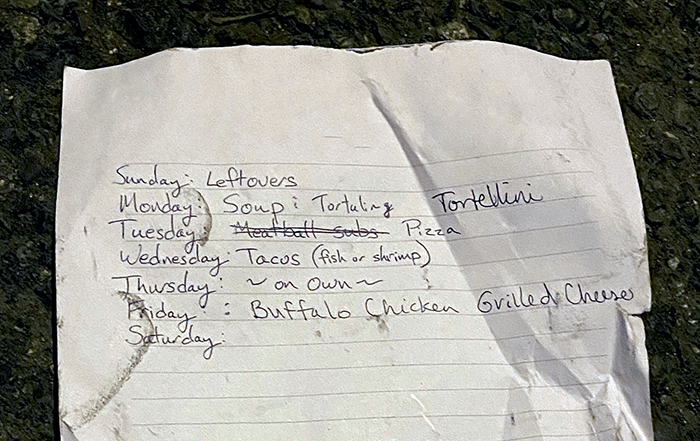 Sunday: Leftovers
Monday: Soup: Tortuling Tortellini
Tuesday: Meatball subs Pizza
Wednesday: Tacos (fish or shrimp)
Thursday: ~ on own ~
Friday: : Buffalo Chicken Grilled Cheese
Saturday: